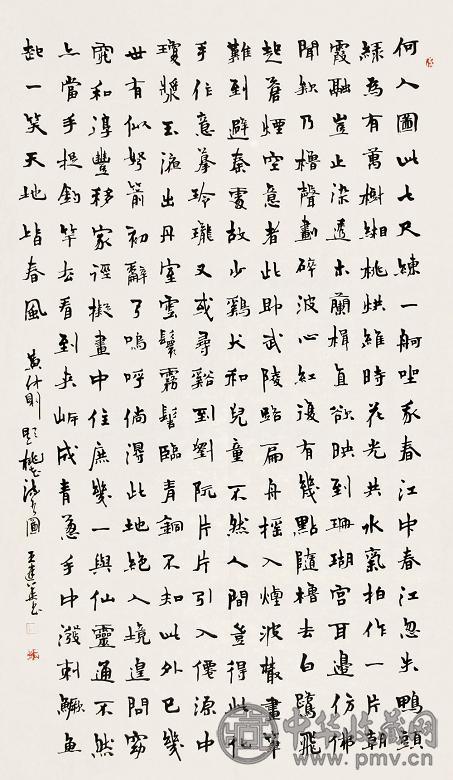 何人圖此七尺練一舸坐家春江中春江忽失鴨頭
綠為有萬樹緗桃烘維時花光共水氣拍作一片朝
霞融豈止染透木蘭楫直欲映到珊瑚宮耳邊仿佛
聞欸乃櫓聲劃碎波心紅復有幾點隨櫓去白鷺飛
起蒼煙空意者此即武陵路扁舟搖入煙波叢畫筆
難到避秦處故少鷄犬和兒童不然人間豈得此化
手作意摹玲瓏又或尋谿到劉阮片片引入僊源中
瓊漿玉液出丹室雲鬟霧鬢臨青銅不知此外已幾
世有似弩箭初辭弓嗚呼倘得此地絕人境遑問
和淳豐移家逕擬畫中住庶幾一與仙靈通不然
亦當手提釣竿去看到夾岸成青蔥手中潑剌鱖魚
起一笑天地皆春風
黃仲則題桃花漁者圖
中华收藏网
www.pmv.cn